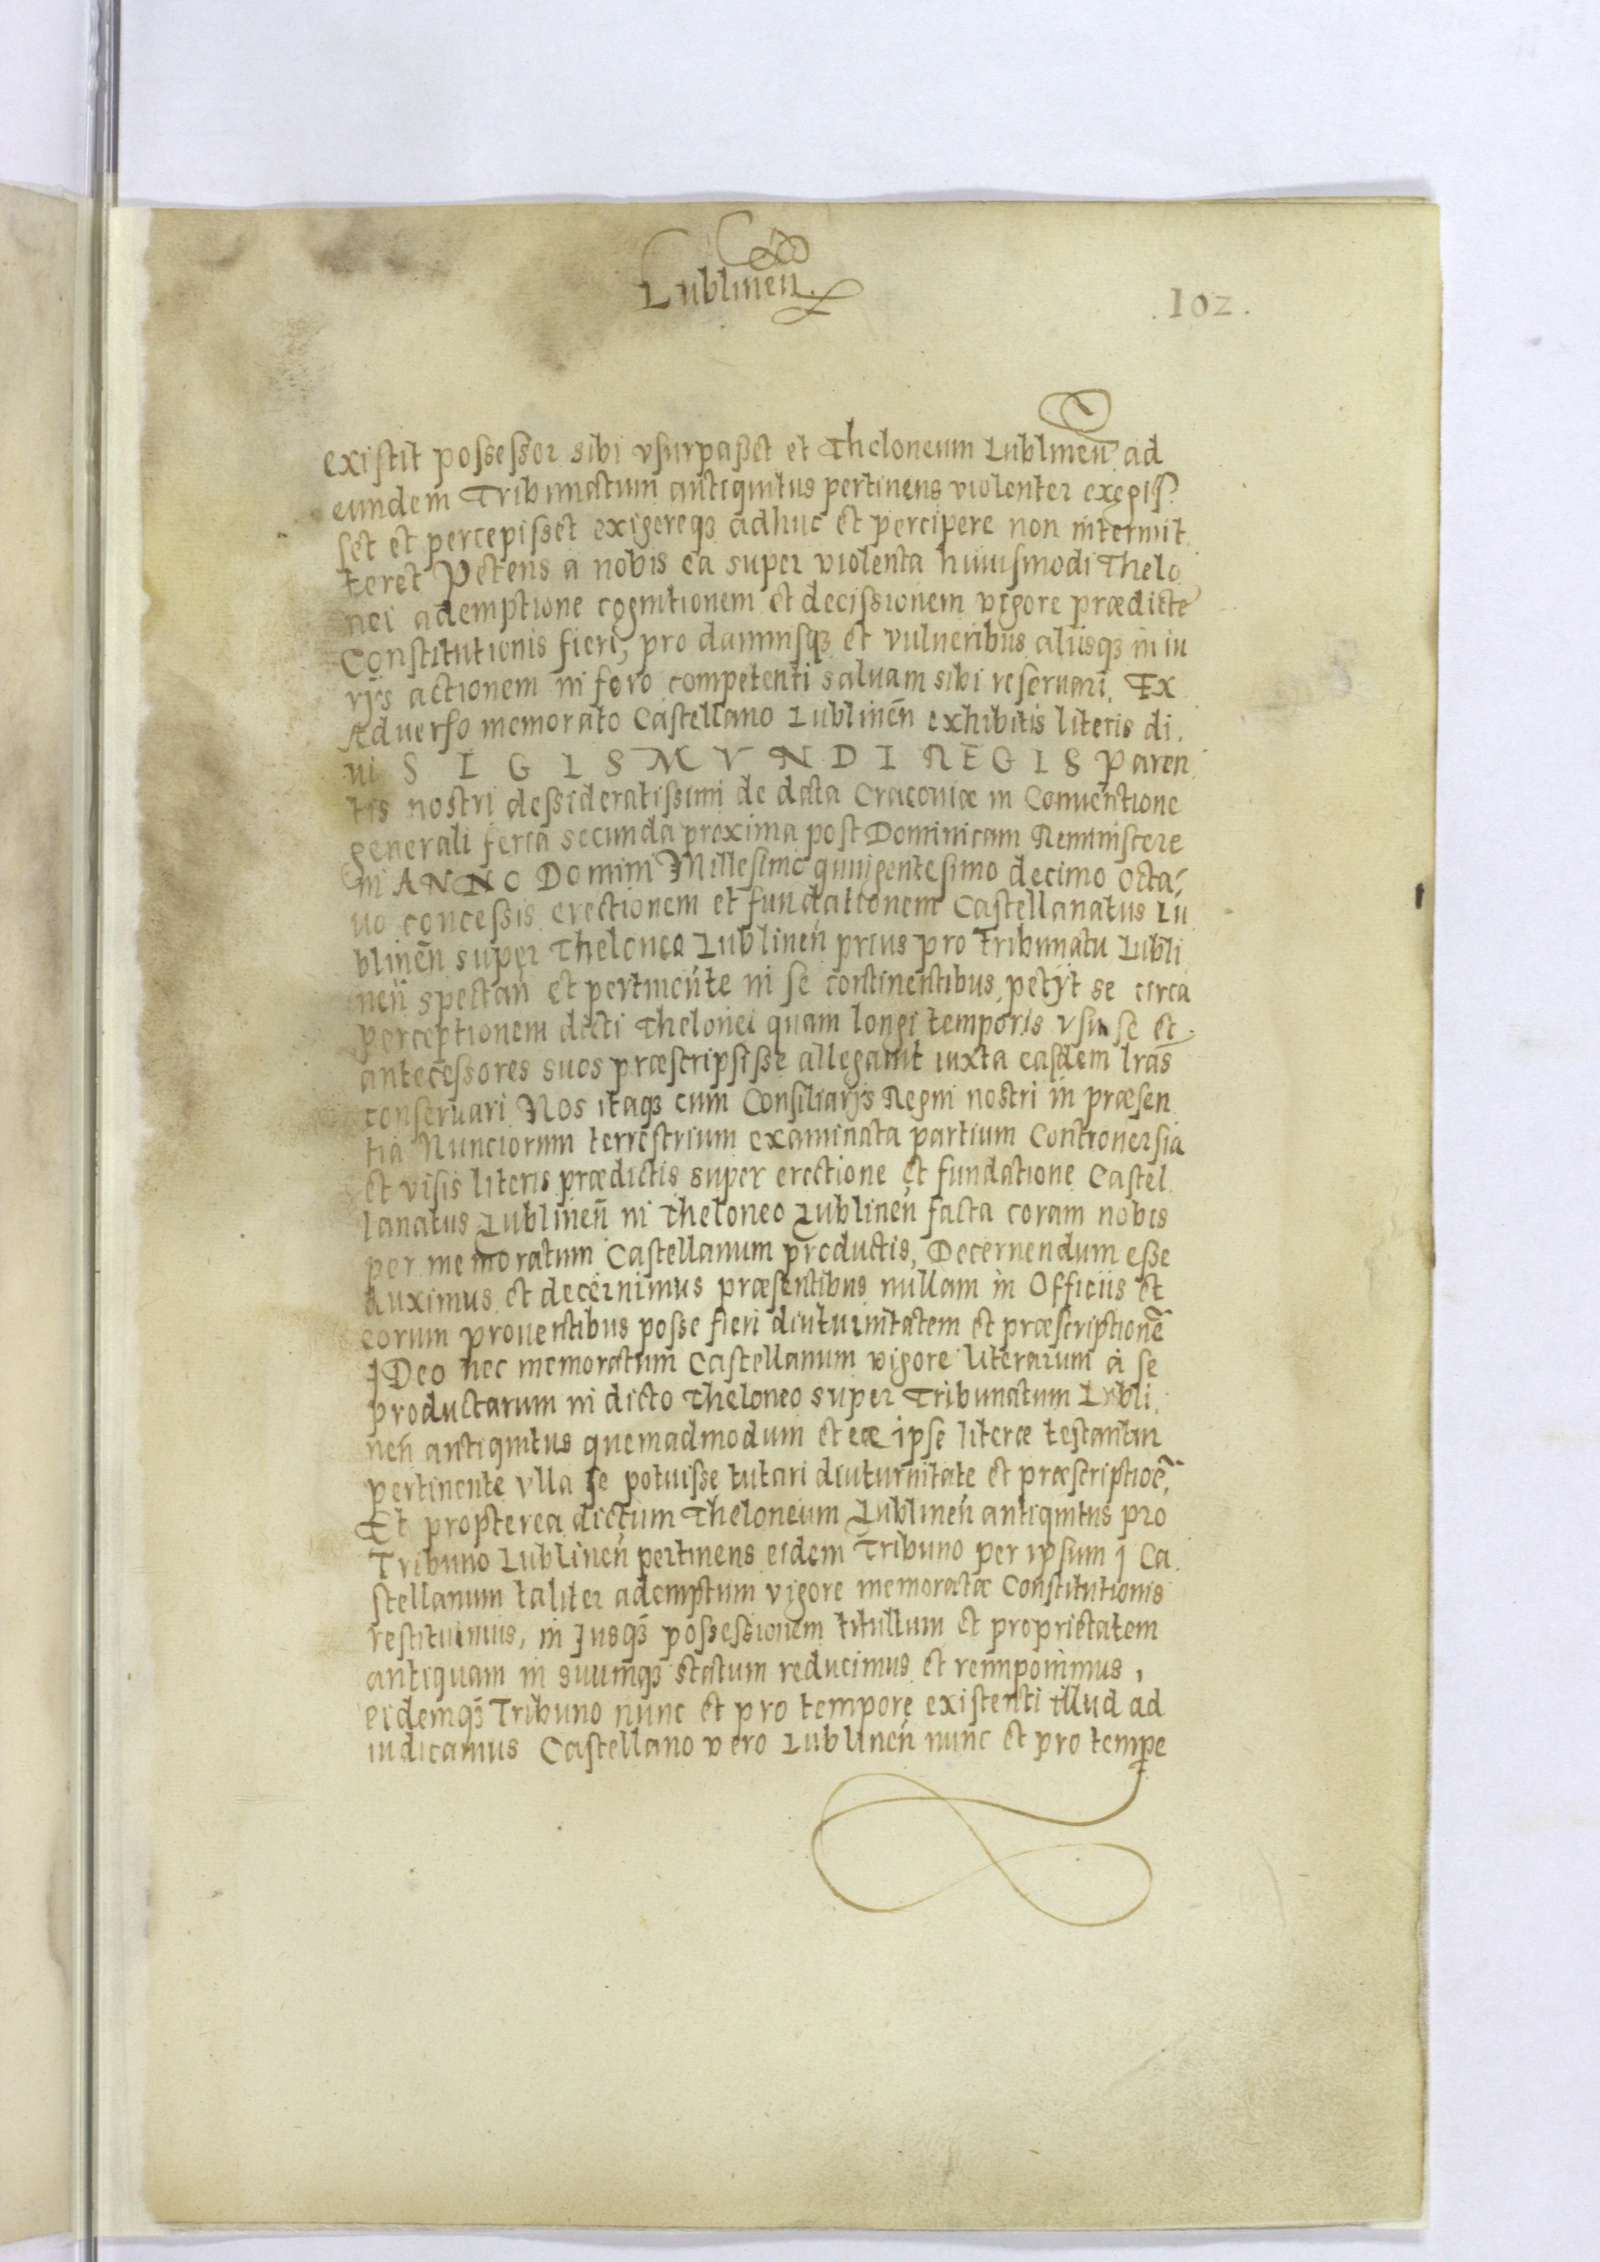 Lublinen̄.
.102.
existit possessor sibi vsurpasset et Theloneum Lublinen̄ ad
eundem Tribunatum antiquitus pertinens violenter exegis
set et percepisset exigereqꝫ adhuc et percipere non intermit
teret Petens a nobis ea super violenta huiusmodi Thelo
nei ademptione cognitionem et decissionem vigore prædicte
Constitutionis fieri, pro damnisqꝫ et vulneribus aliisqꝫ in iu
rijs actionem in foro competenti saluam sibi reseruari. Ex
Aduerso memorato Castellano Lublinen̄ exhibitis literis di.
ui SIGISMVNDI REGIS Paren
tis nostri dessideratissimi de data Cracouiæ in Conuentione
generali feria secunda proxima post Dominicam Reminiscere
in ANNO Domini Millesimo quingentesimo decimo octa,
uo concessis erectionem et fundationem Castellanatus Lu
blinen̄ super Theloneo Lublinen̄ prius pro Tribunatu Lubli
nen̄ spectan̄ et pertinente in se continentibus, petÿt se circa
perceptionem dicti Thelonei quam longi temporis vsu se et
antecessores suos præscripsisse allegauit iuxta easdem lr̄as
conseruari Nos itaqꝫ cum Consiliarÿs Regni nostri in præsen
tia Nunciorum terrestrium examinata partium Controuersia
et visis literis prædictis super erectione et fundatione Castel
lanatus Lublinen̄ in Theloneo Lublinen̄ facta coram nobis
per memoratum Castellanum productis, Decernendum esse
duximus et decernimus præsentibus nullam in Officiis et
eorum prouentibus posse fieri diuturnitatem et præscriptionē
IDeo nec memoratum Castellanum vigore literarum à se
productarum in dicto Theloneo super Tribunatum Lubli
nen̄ antiquitus quemadmodum et eæ ipse literæ testantur
pertinente vlla se potuisse tutari diuturnitate et præscriptioē,
Et propterea dictum Theloneum Lublinen̄ antiquitus pro
Tribuno Lublinen̄ pertinens eidem Tribuno per ipsum Ca
stellanum taliter ademptum vigore memoratæ Constitutionis
restituimus, in Jusqꝫ possessionem titullum et proprietatem
antiquam in suumqꝫ statum reducimus et reimponimus,
eidemqꝫ Tribuno nunc et pro tempore existenti illud ad
iudicamus Castellano vero Lublinen̄ nunc et pro tempe